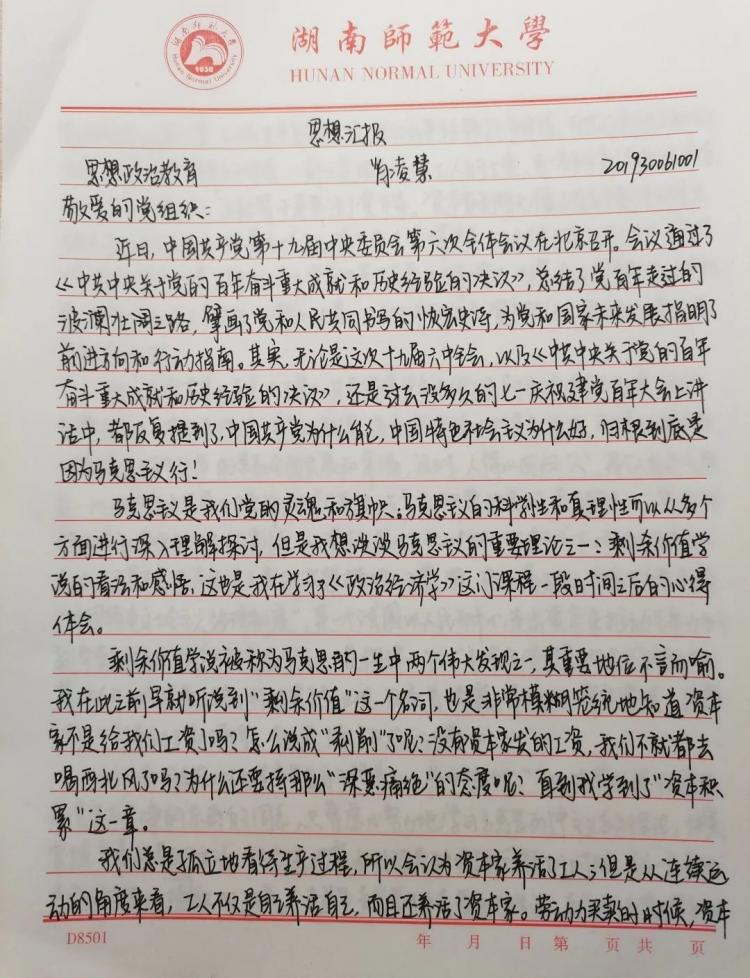 湖南師範大學
HUNAN NORMAL UNIVERSITY
湖南师范大学
Hunan Normal University
1938
思想汇报
思想政治教育 肖凌慧 201930061001
敬爱的党组织：
近日，中国共产党第十九届中央委员会第六次全体会议在北京召开。会议通过了
《中共中央关于党的百年奋斗重大成就和历史经验的决议》，总结了党百年走过的
波澜壮阔之路，擘画了党和人民共同书写的恢宏史诗，为党和国家未来发展指明了
前进方向和行动指南。其实，无论是这次十九届六中全会，以及《中共中央关于党的百年
奋斗重大成就和历史经验的决议》，还是过去没多久的七一庆祝建党百年大会上讲
话中，都反复提到了，中国共产党为什么能，中国特色社会主义为什么好，归根到底是
因为马克思主义行！
马克思主义是我们党的灵魂和旗帜。马克思主义的科学性和真理性可以从多个
方面进行深入理解探讨，但是我想谈谈马克思主义的重要理论之一：剩余价值学
说的看法和感悟，这也是我在学习了《政治经济学》这门课程一段时间之后的心得
体会。
剩余价值学说被称为马克思的一生中两个伟大发现之一，其重要地位不言而喻。
我在此之前早就听说到“剩余价值”这一个名词，也是非常模糊笼统地知道资本
家不是给我们工资了吗？怎么说成“剥削”了呢？没有资本家发的工资，我们不就都去
喝西北风了吗？为什么还要持那么“深恶痛绝”的态度呢？直到我学到了“资本积
累”这一章。
我们总是孤立地看待生产过程，所以会认为资本家养活了工人；但是从连续运
动的角度来看，工人不仅是自己养活自己，而且还养活了资本家。劳动力买卖的时候，资本
D8501 年 月 日 第 页 共 页